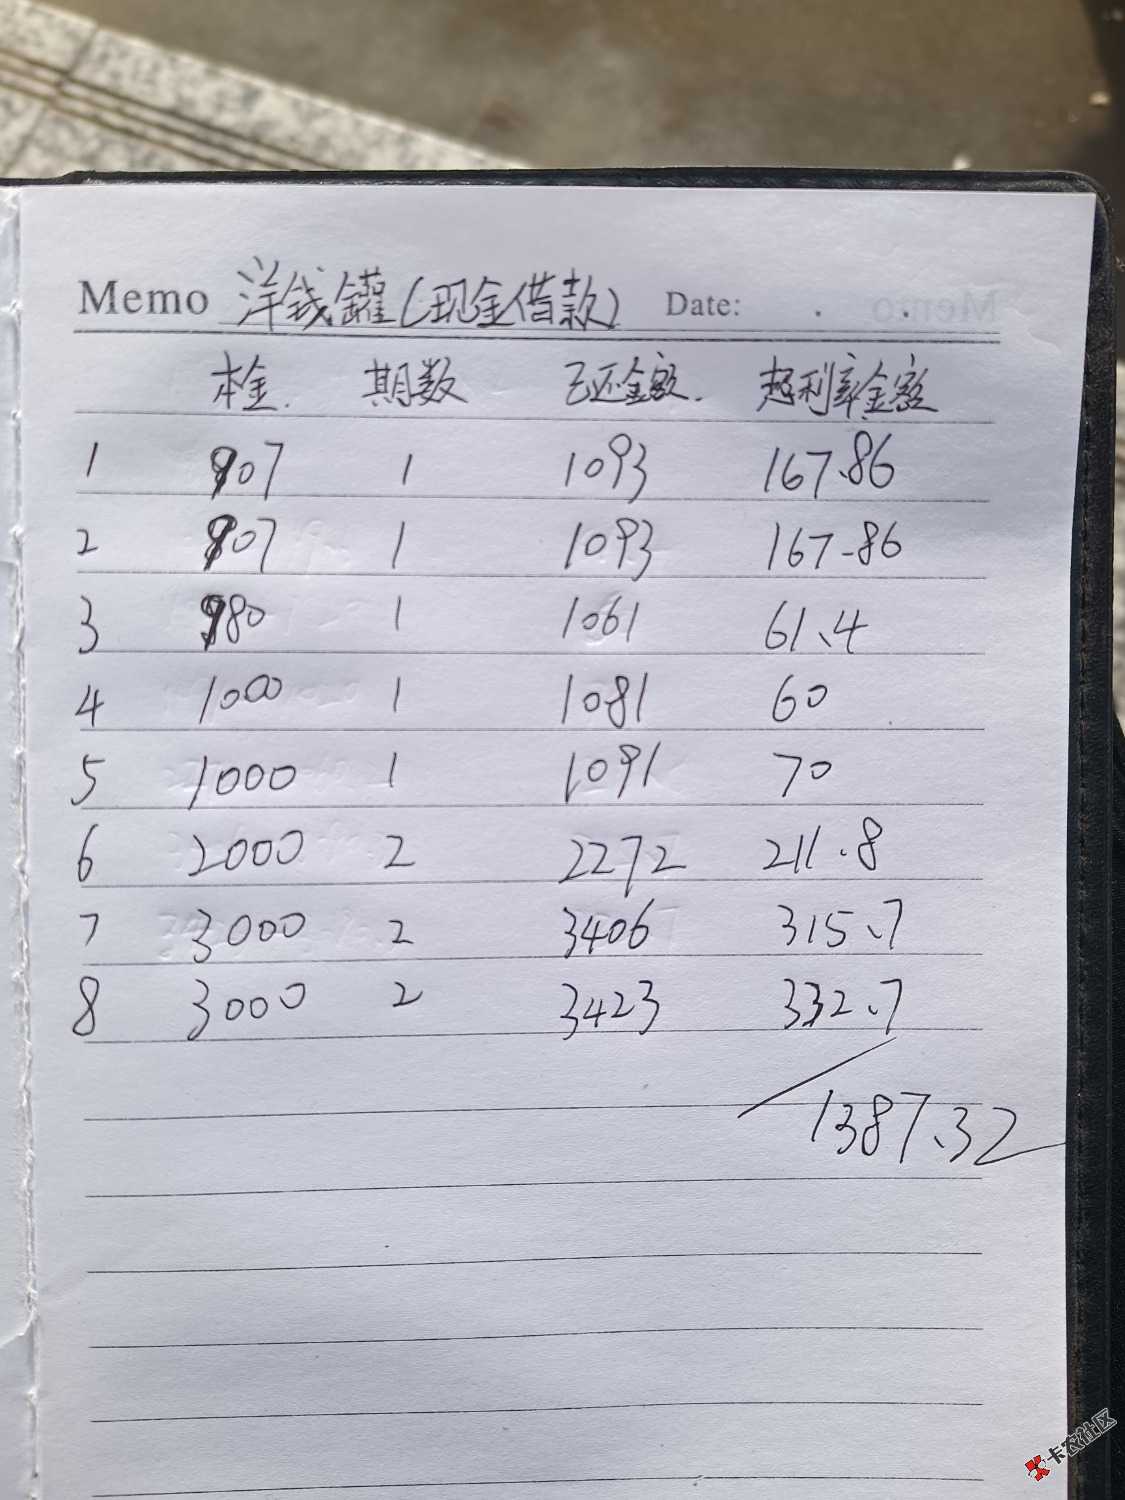 Memo 洋钱罐(现金借款) Date: . .
本金. 期数 已还金额. 超利率金额
1 907 1 1093 167.86
2 907 1 1093 167.86
3 980 1 1061 61.4
4 1000 1 1081 60
5 1000 1 1091 70
6 2000 2 2272 211.8
7 3000 2 3406 315.7
8 3000 2 3423 332.7
1387.32
卡农社区